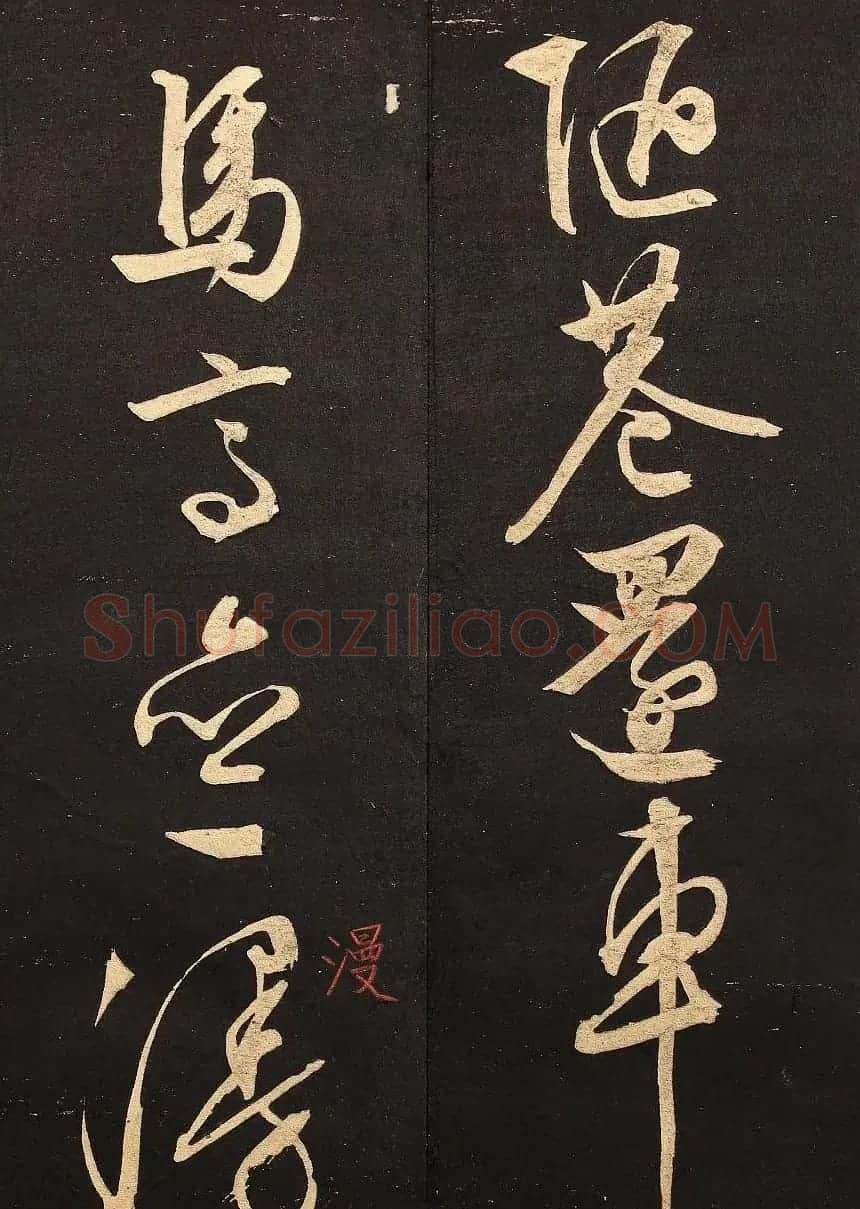 陋巷還車
馬高漫
漫
Shufaziliao.COM